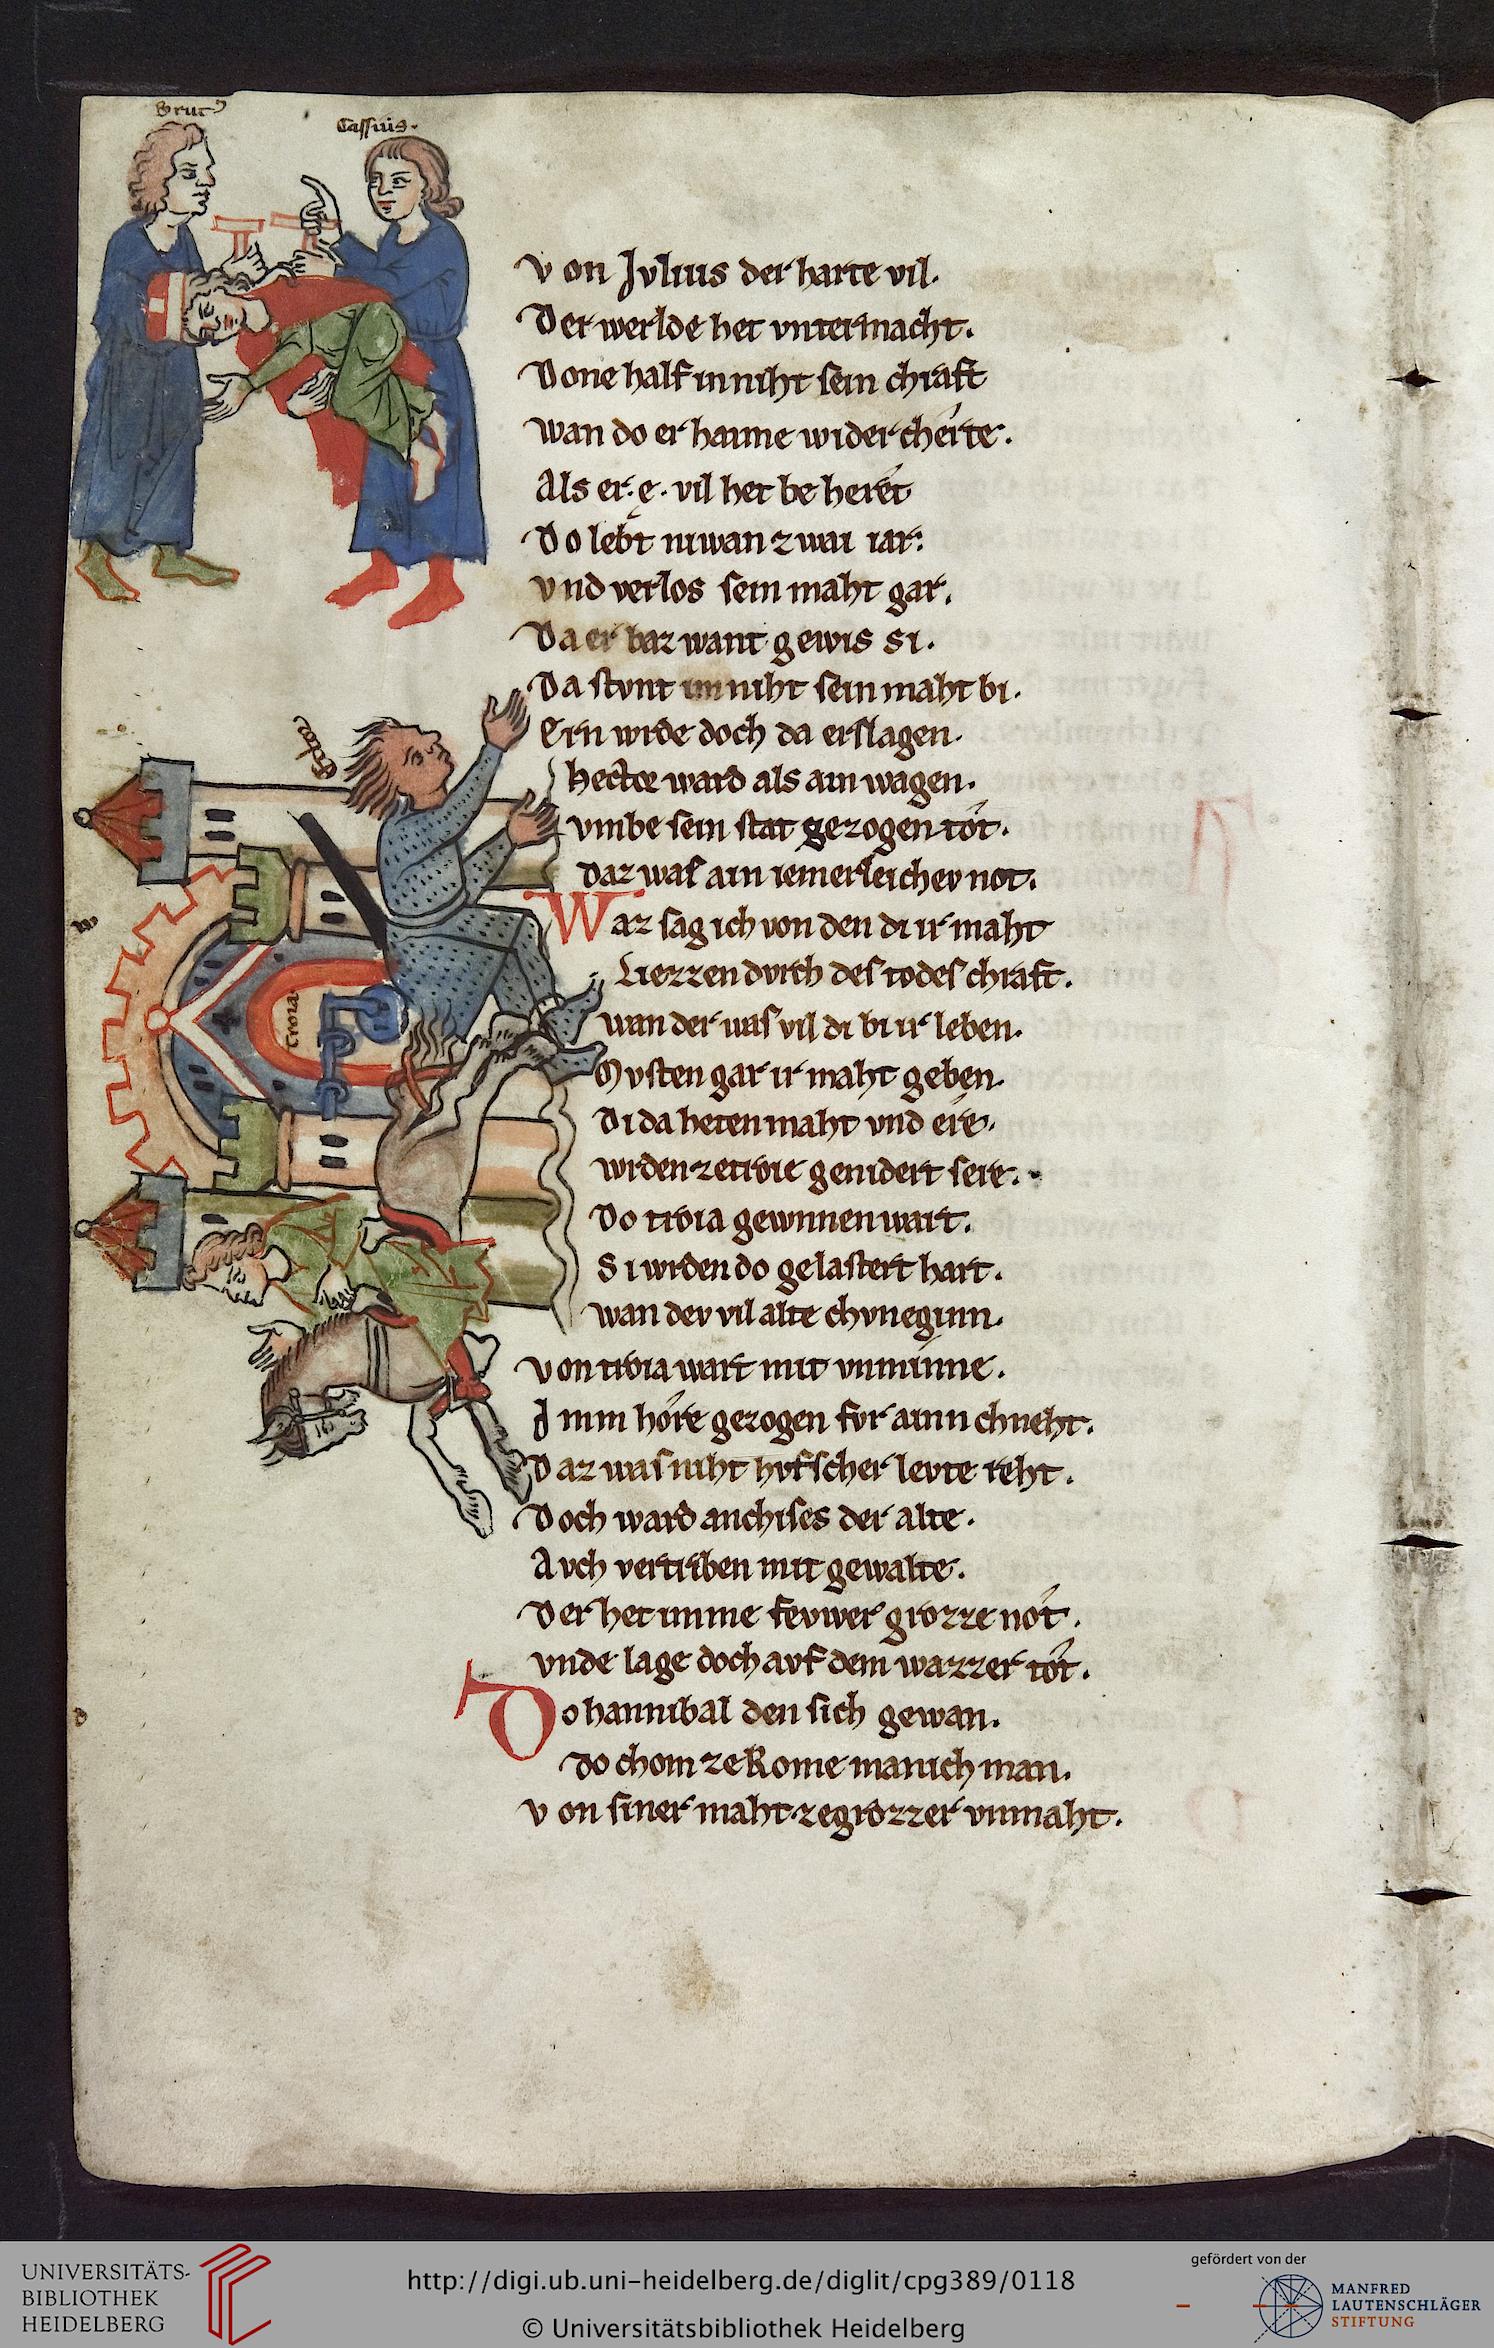 Brut⁹
Cassius.
Von Jvlius der harte vil.
Der werlde het vntermacht.
Done half in niht sein chraft
wan do er haime wider cherte.
Als er. e. vil het be heret
Do lebt niwan zwai iar.
vnd verlos sein maht gar.
Da er baz want gewis si.
Da stvnt im niht sein maht bi.
Ern wrde doch da erslagen.
Hector
hector ward als ain wagen.
vmbe sein stat gezogen tot.
daz was ain iemerleichev not.
w
Waz sag ich von den di ir maht
Liezzen dvrch des todes chraft.
wan der was vil di bi ir leben.
Troia
Mvsten gar ir maht geben.
Di da heten maht vnd ere.
wrden ze troie genidert sere.
Do troia gewnnen wart.
Si wrden do gelastert hart.
wan dev vil alte chvneginn.
von troia wart mit vnminne.
Jmm hore gezogen fvr ainn chneht.
Daz was niht hvfscher levte reht.
Doch ward anchises der alte.
Avch vertriben mit gewalte.
Der het imme fevwer grozze not.
vnde lage doch avf dem wazzer tot.
d
Do hannibal den sich gewan.
do chom ze Rome manich man.
von siner maht ze grozzer vnmaht.
UNIVERSITÄTS-
BIBLIOTHEK
HEIDELBERG
http://digi.ub.uni-heidelberg.de/diglit/cpg389/0118
© Universitätsbibliothek Heidelberg
gefördert von der
MANFRED
LAUTENSCHLÄGER
STIFTUNG